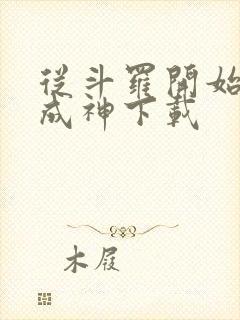 從斗羅開始
成神下載
木屐